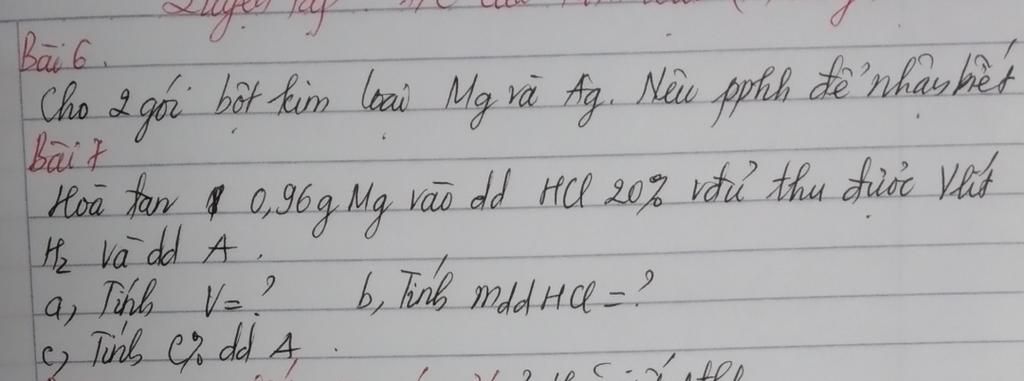 Luyện tập
Bài 6.
Cho 2 gói bột kim loại Mg và Ag. Nêu pphh để nhận biết
Bài 7
Hoà tan 0,96g Mg vào dd HCl 20% vđủ thu được V lít
H₂ và dd A.
a, Tính V=? b, Tính mddHCl=?
c, Tính C% dd A.